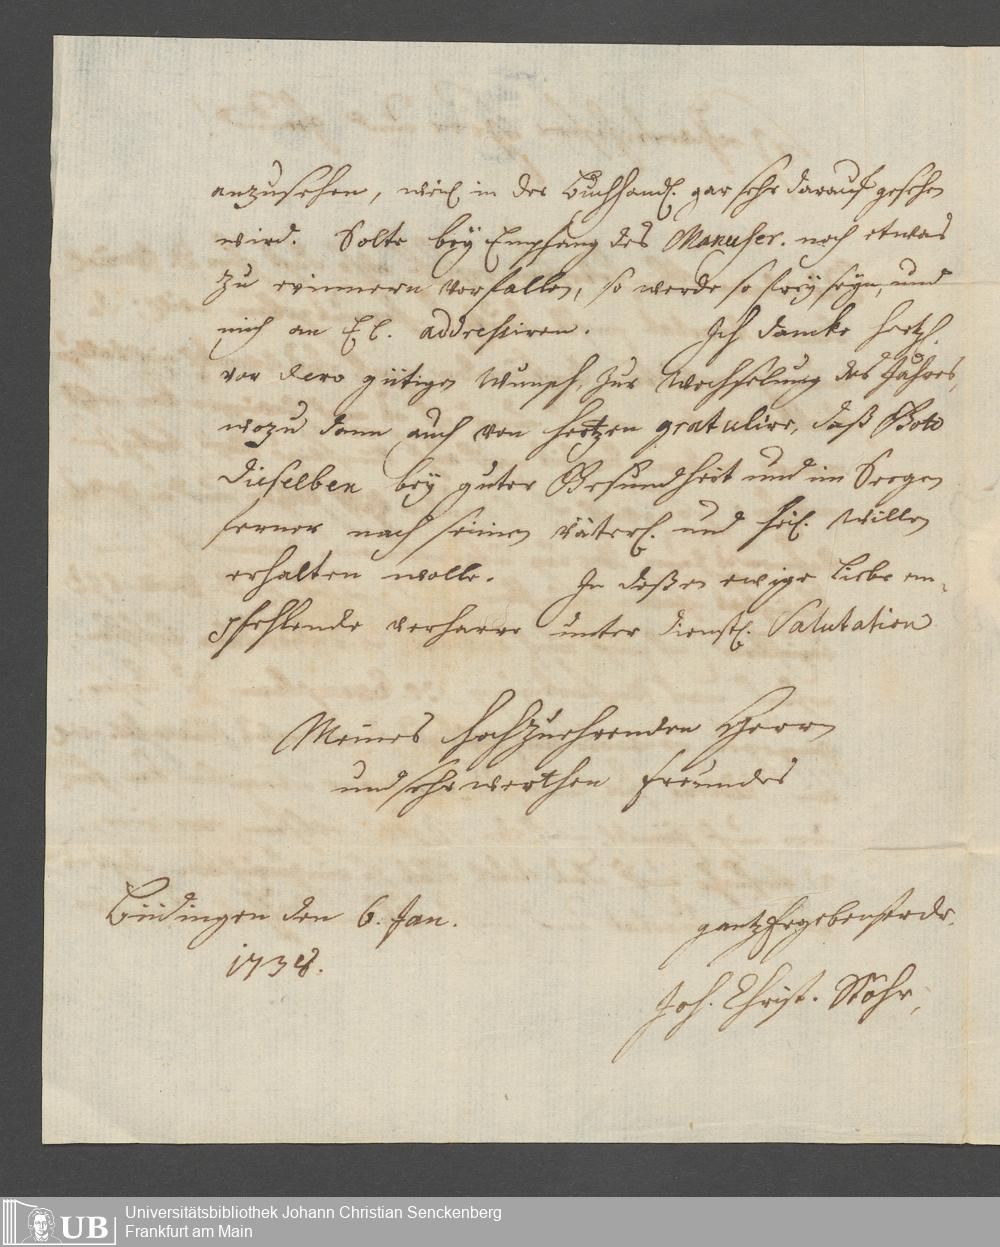 anzusehen, weil in der Buchhandl. gar sehr darauf gesehen
wird. Solte bey Empfang des Manuscr. noch etwas
zu erinnern vorfallen, so werde so frey seyn, und
mich an E E. addressiren. Ich dancke hertzl.
vor dero gütigen Wunsch, zur Wechselung des Jahres,
wozu dann auch von Hertzen gratulire, daß Gott
dieselben bey guter Gesundheit und im Seegen
ferner nach seinem väterl. und heil. Willen
erhalten wolle. In deßen ewige Liebe em-
pfehlende verharre unter dienstl. Salutation
Meines Hochzuehrenden Herrn
und sehr werthen Freundes
Büdingen den 6. Jan.
1738.
gantz Ergebenster dr.
Joh. Christ. Stöhr,
UB
Universitätsbibliothek Johann Christian Senckenberg
Frankfurt am Main